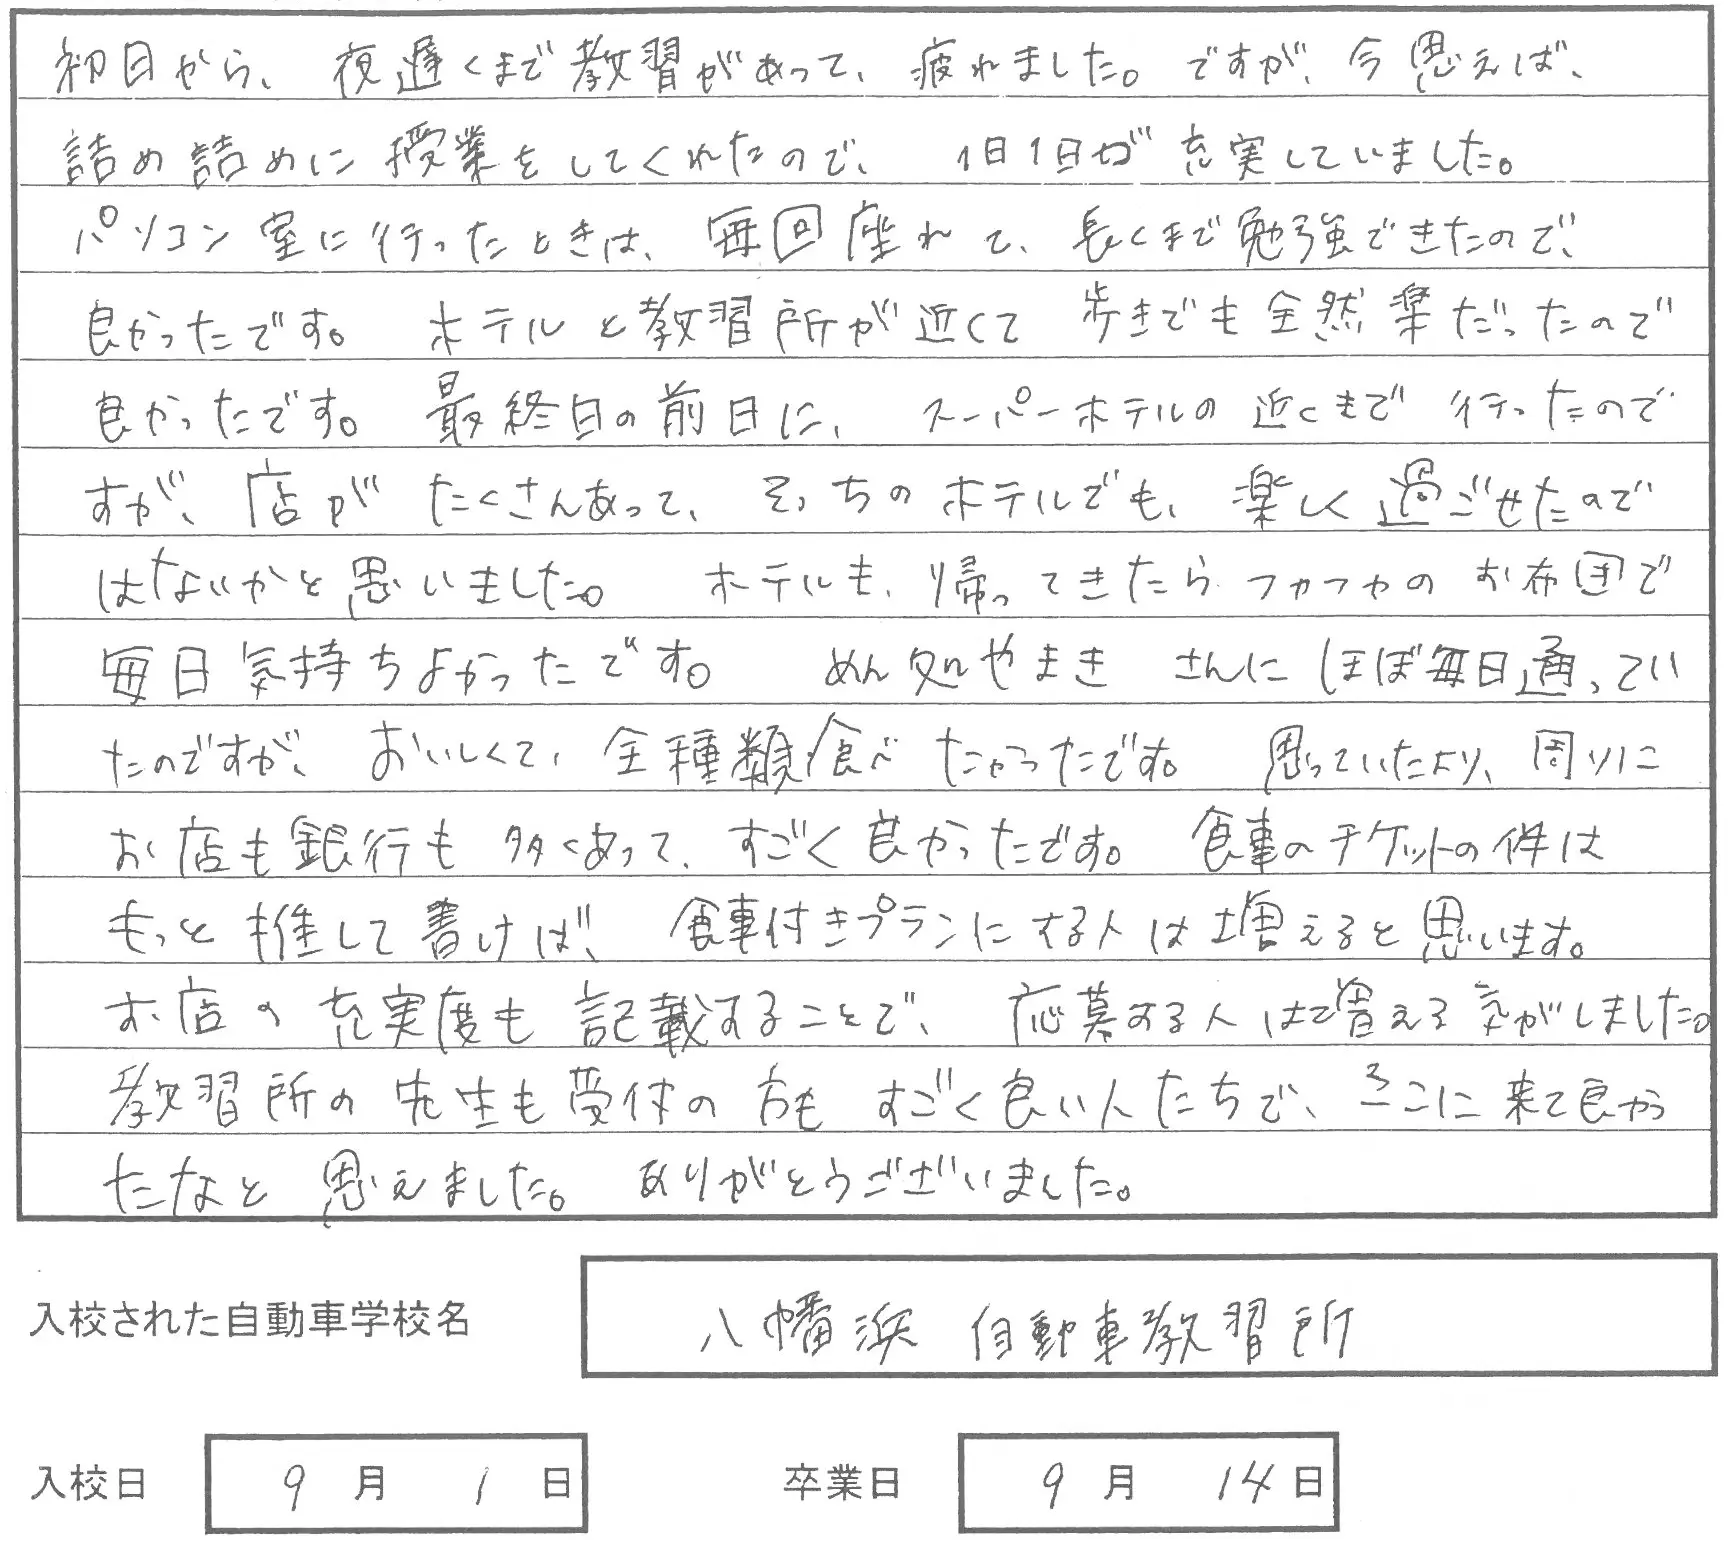 初日から、夜遅くまで教習があって、疲れました。ですが、今思えば、
詰め詰めに授業をしてくれたので、1日1日が充実していました。
パソコン室に行ったときは、毎回座れて、長くまで勉強できたので、
良かったです。ホテルと教習所が近くて歩きでも全然楽だったので
良かったです。最終日の前日に、スーパーホテルの近くまで行ったので
すが、店がたくさんあって、そっちのホテルでも、楽しく過ごせたので
はないかと思いました。ホテルも、帰ってきたらフカフカのお布団で
毎日気持ちよかったです。めん処やまき さんにほぼ毎日通ってい
たのですが、おいしくて、全種類食べたかったです。思っていたより、周りに
お店も銀行も多くあって、すごく良かったです。食事のチケットの件は
もっと推して書けば、食事付きプランにする人は増えると思います。
お店の充実度も記載することで、応募する人は増える気がしました。
教習所の先生も受付の方もすごく良い人たちで、ここに来て良かっ
たなと思えました。ありがとうございました。
入校された自動車学校名 八幡浜 自動車教習所
入校日 9月1日 卒業日 9月14日